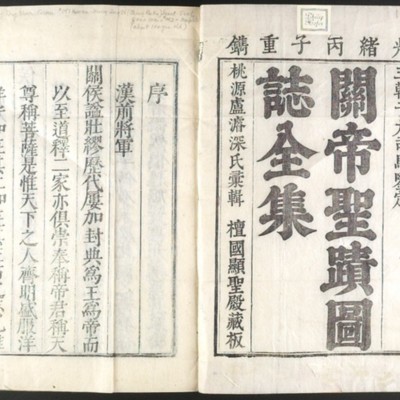 緒丙子重鐫
關帝聖蹟圖
誌全集
桃源盧濬深氏彙輯 檀國顯聖殿藏板
序
漢前將軍
關侯諡壯繆歷代屢加封典爲王爲帝而
以至道釋二家亦俱崇奉稱帝君稱天
尊稱菩薩是惟天下之人齊明盛服洋